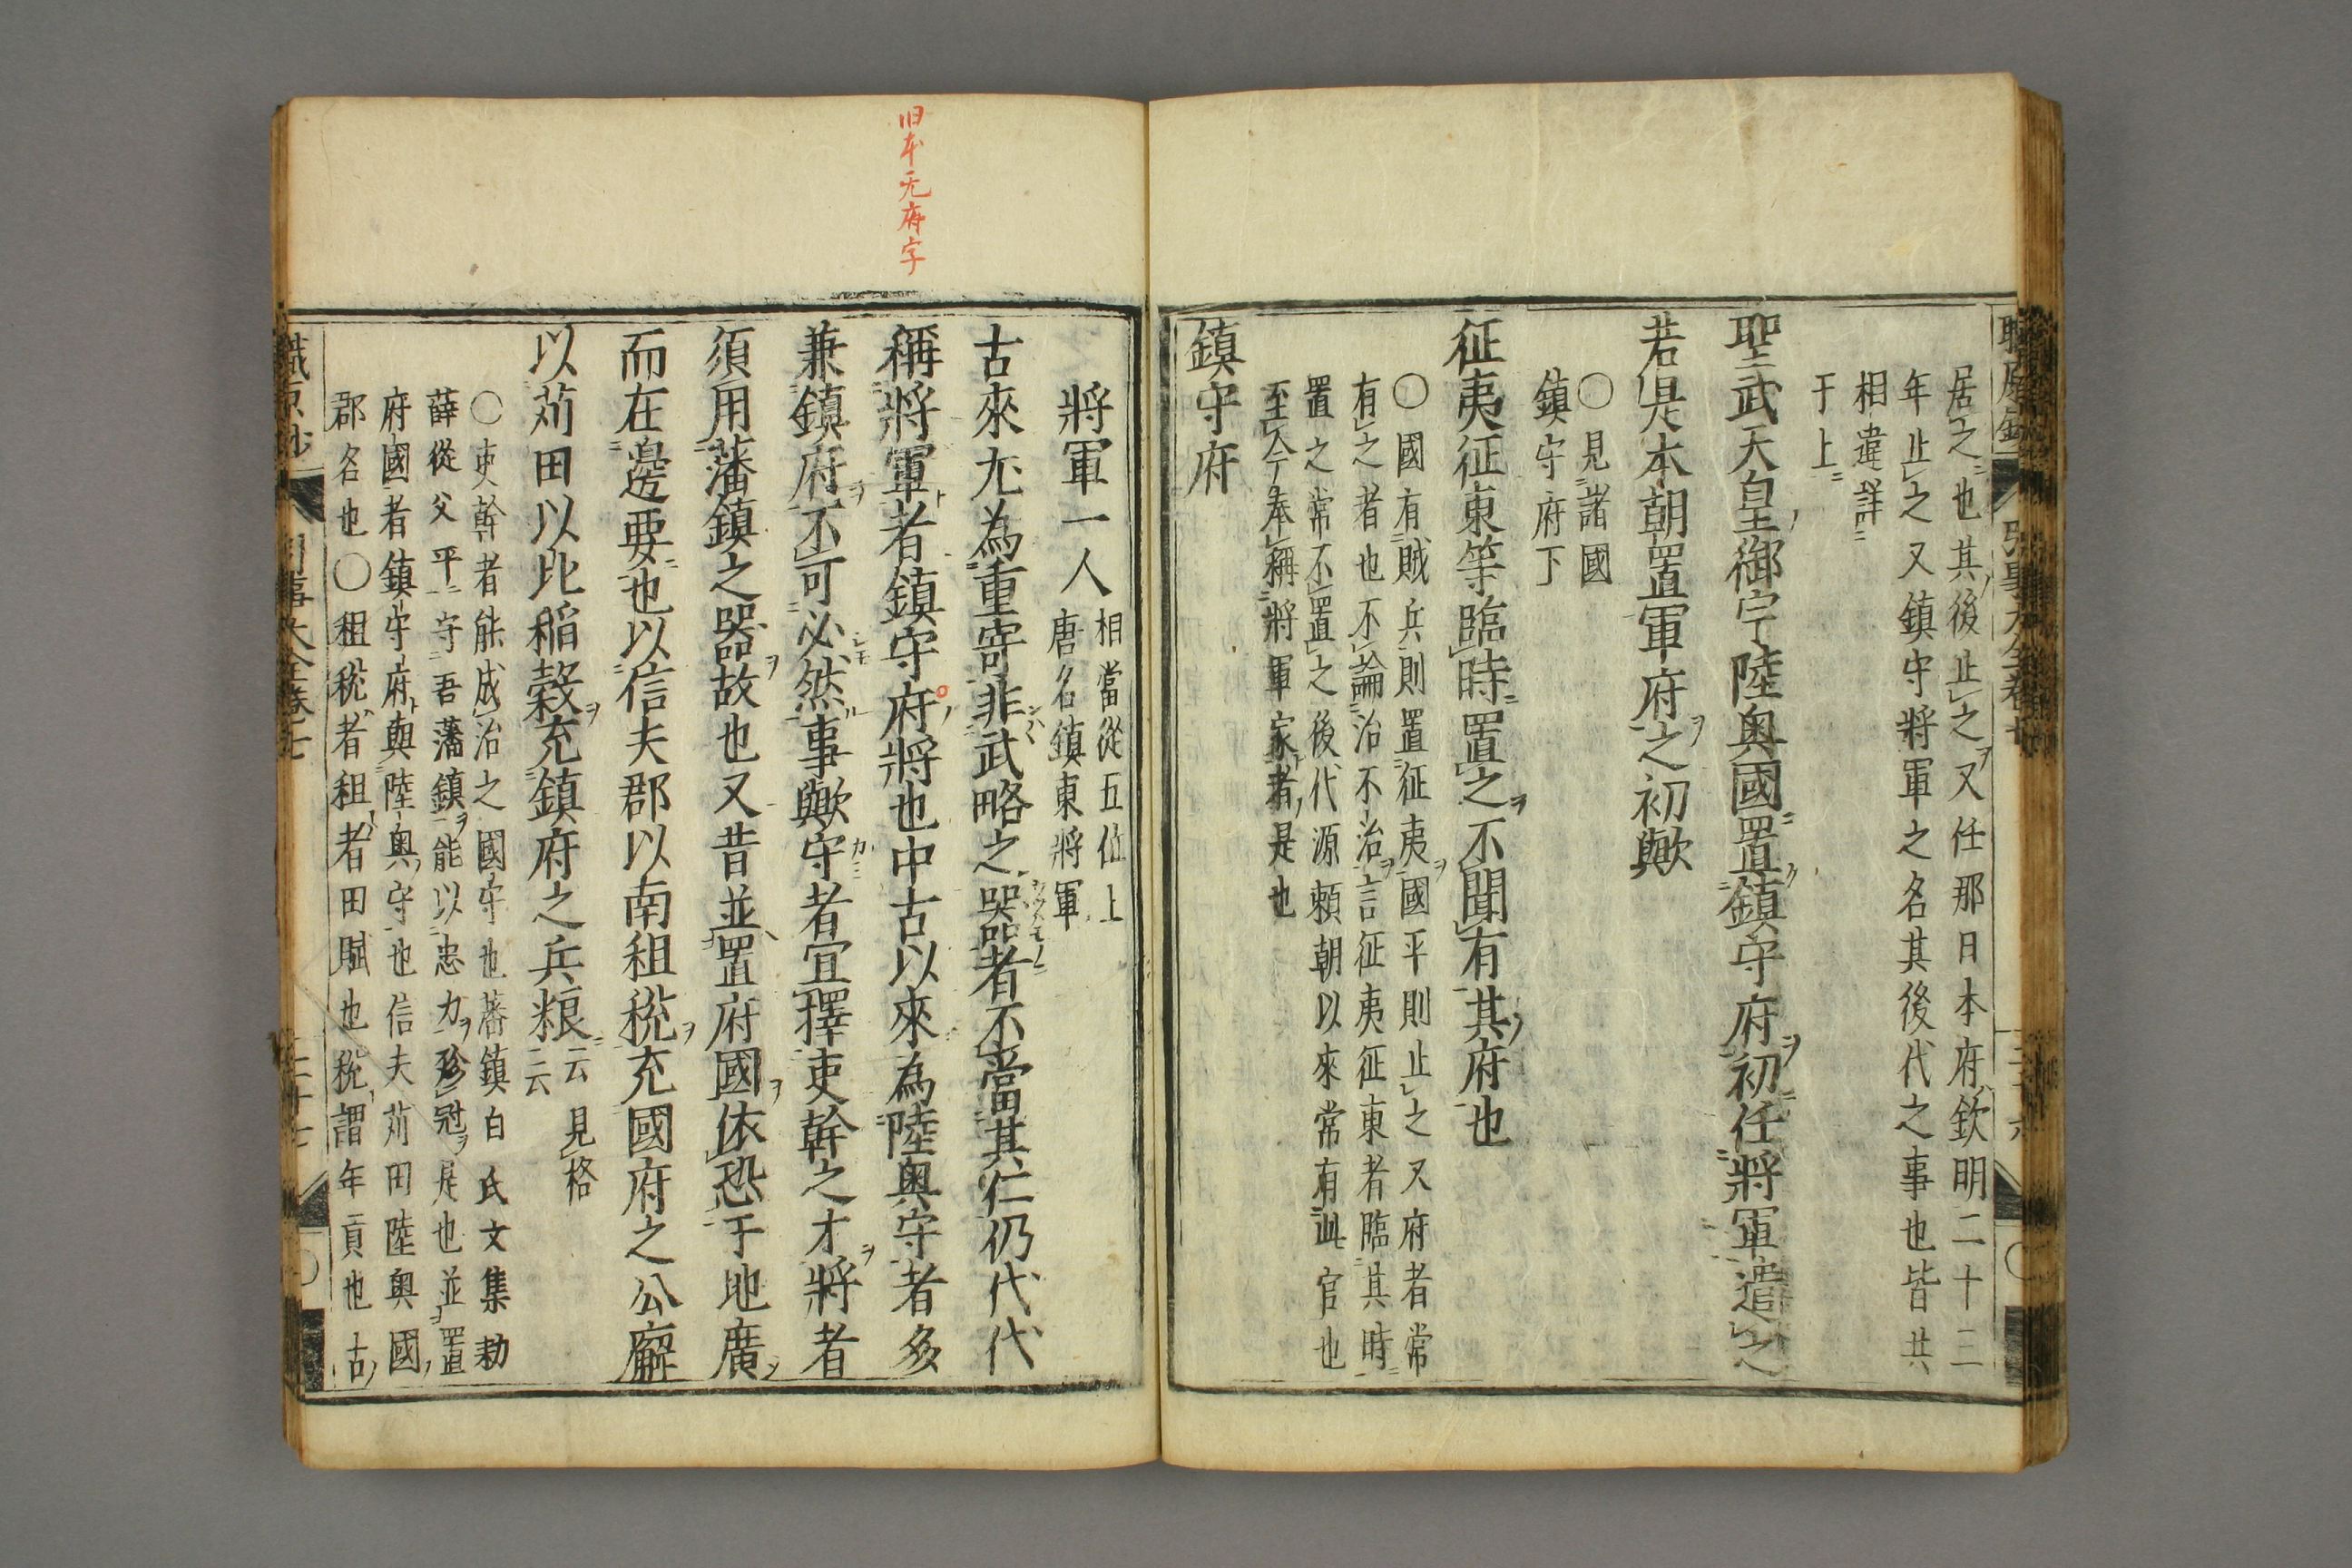 居之也其後止之又任那日本府欽明二十三
年止之又鎮守將軍之名其後代之事也皆共
相違詳
于上
聖武天皇御宇陸奧國置鎮守府初任將軍遣之
若是本朝置軍府之初歟
〇見諸國
鎮守府下
征夷征東等臨時置之不聞有其府也
〇國有賊兵則置征夷國平則止之又府者常
有之者也不論治不治言征夷征東者臨其時
置之常不置之後代源賴朝以來常有此官也
至今奉稱將軍家者是也
鎮守府
旧本无府字
將軍一人
相當從五位上
唐名鎮東將軍
古來尤為重寄非武略之器者不當其仁仍代代
稱將軍者鎮守府將也中古以來為陸奧守者多
兼鎮府不可必然事歟守者宜擇吏幹之才將者
須用藩鎮之器故也又昔並置府國依恐于地廣
而在邊要也以信夫郡以南租稅充國府之公廨
以苅田以北稻穀充鎮府之兵粮
云云
見格
〇吏幹者能成治之國守也藩鎮白氏文集勅
薛從父平守吾藩鎮能以忠力殄冦是也並置
府國者鎮守府與陸奧守也信夫苅田陸奧國
郡名也〇租稅者租者田賦也稅謂年貢也古